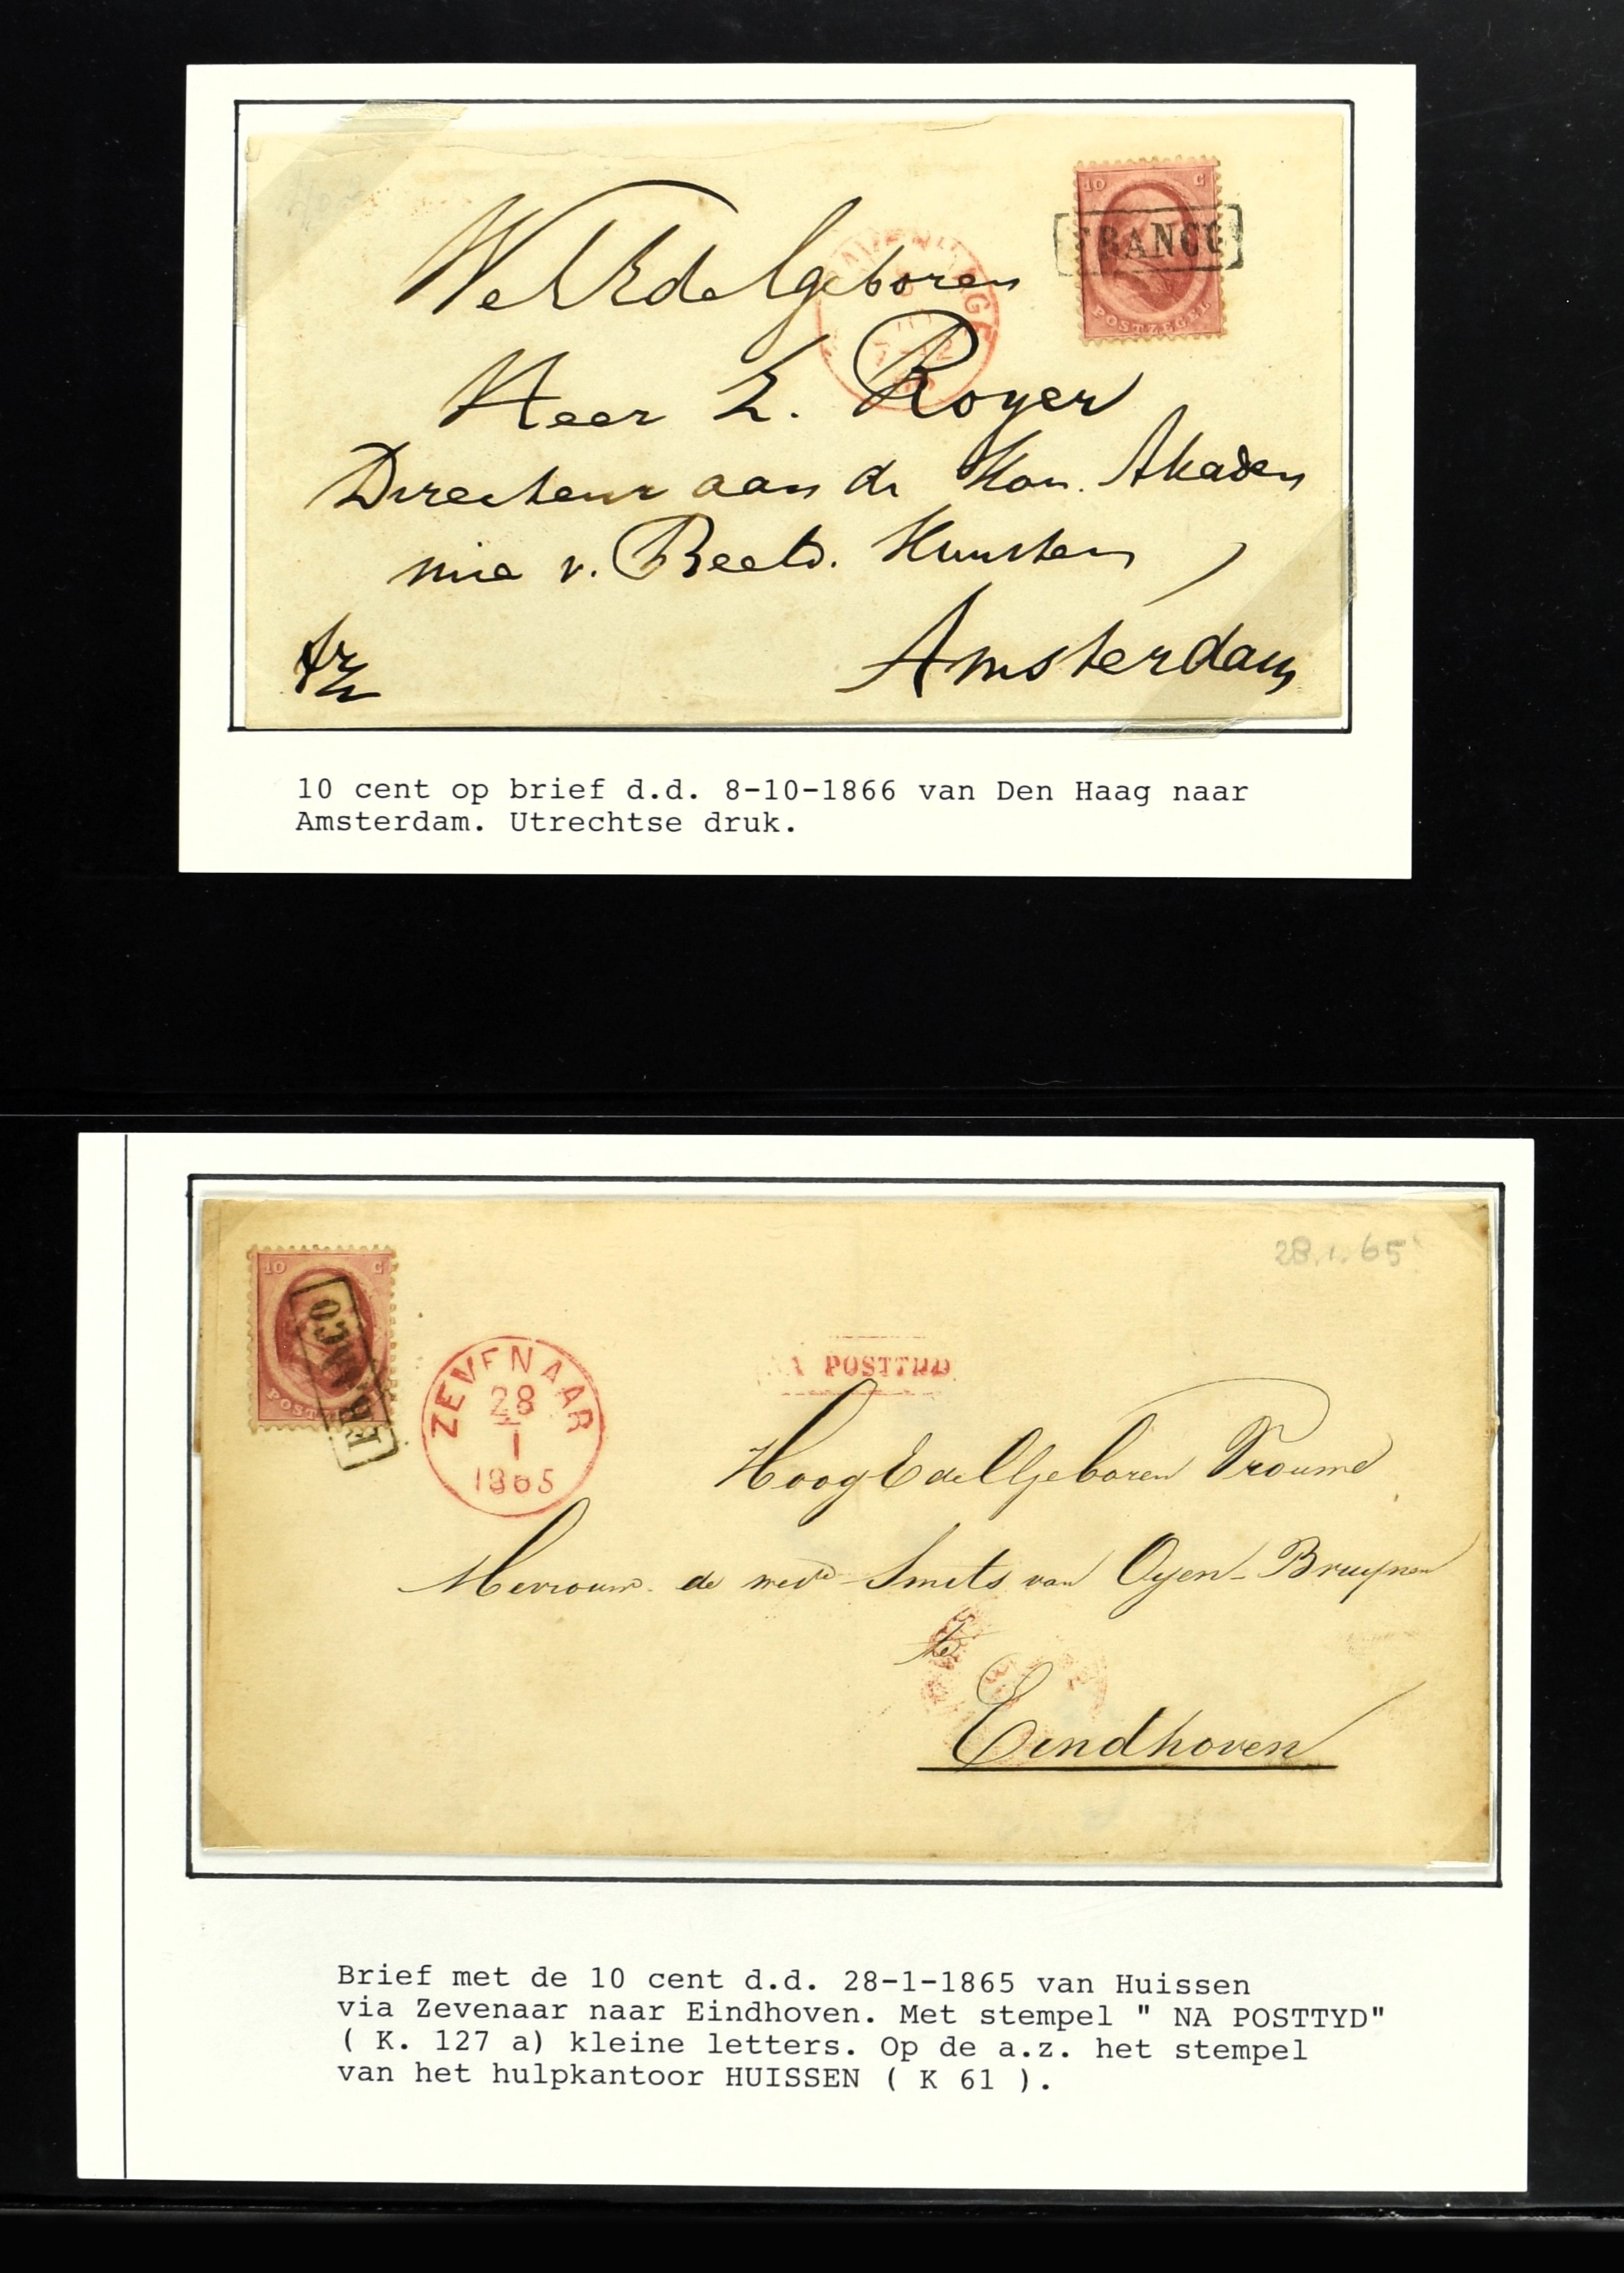 10 C
FRANCO
POSTZEGEL
WelEdelgeboren
Heer L. Royer
Directeur aan de Kon. Akade
mie v. Beeld. Kunsten
Amsterdam
10 cent op brief d.d. 8-10-1866 van Den Haag naar
Amsterdam. Utrechtse druk.
28.1.65
10 C
FRANCO
ZEVENAAR
28
1
1865
NA POSTTYD
HoogEdelGeboren Vrouwe
Mevrouw de wede Smits van Oyen-Bruynen
te
Eindhoven
Brief met de 10 cent d.d. 28-1-1865 van Huissen
via Zevenaar naar Eindhoven. Met stempel " NA POSTTYD"
( K. 127 a) kleine letters. Op de a.z. het stempel
van het hulpkantoor HUISSEN ( K 61 ).